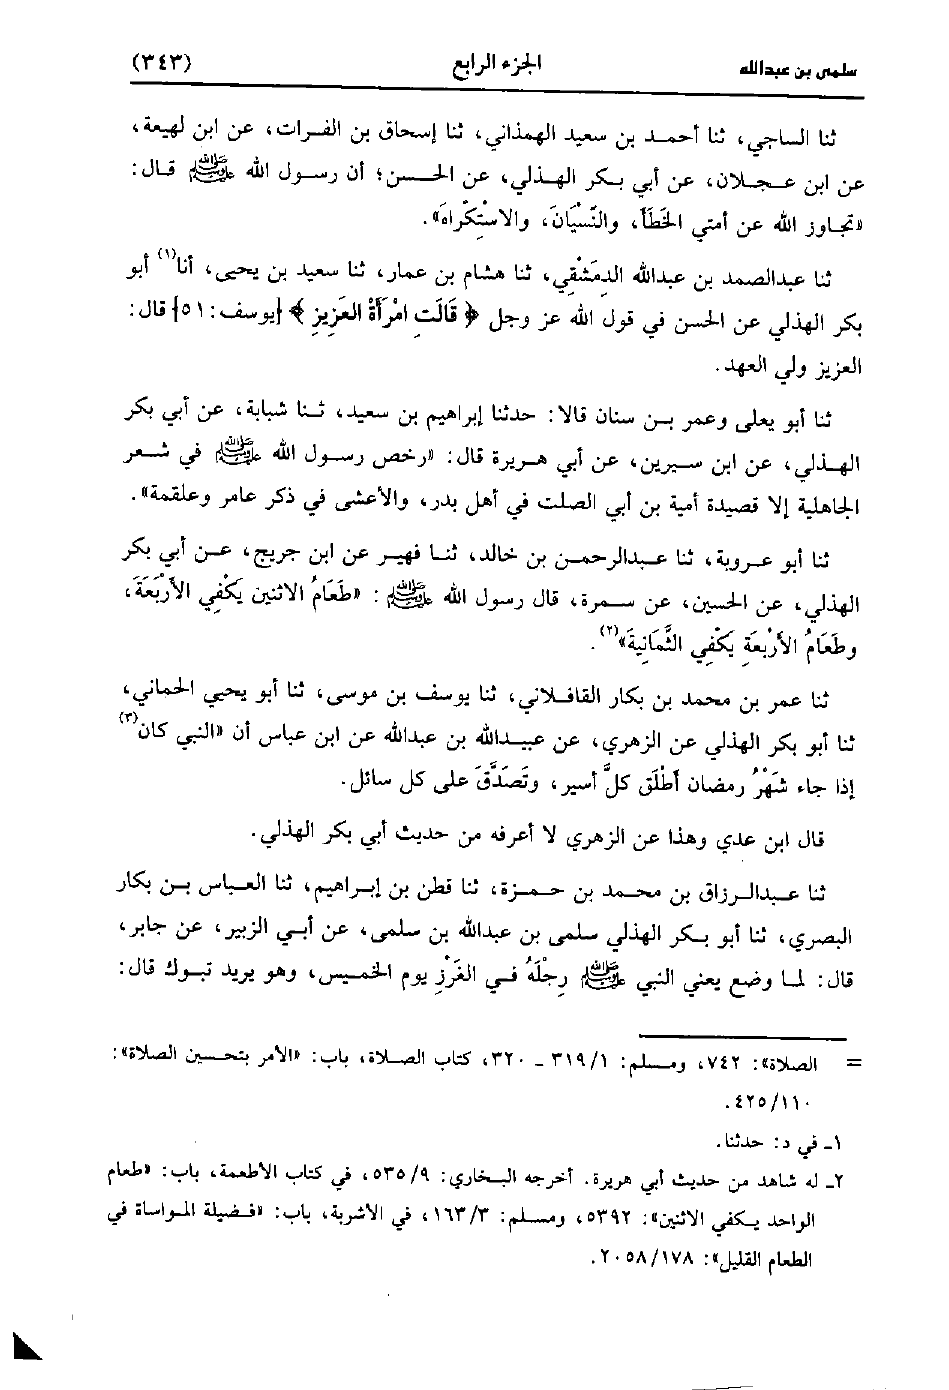 سلمى بن عبدالله الجزء الرابع (٣٤٣)
ثنا الساجي، ثنا أحمد بن سعيد الهمذاني، ثنا إسحاق بن الفرات، عن ابن لهيعة،
عن ابن عجلان، عن أبي بكر الهذلي، عن الحسن؛ أن رسول الله ﷺ قال:
«تجاوز الله عن أمتي الخَطَأَ، والنِّسْيَانَ، والاسْتِكْرَاهَ».
ثنا عبدالصمد بن عبدالله الدِمَشْقِي، ثنا هشام بن عمار، ثنا سعيد بن يحيى، أنا(١) أبو
بكر الهذلي عن الحسن في قول الله عز وجل ﴿قَالَتِ امْرَأَةُ العَزِيزِ﴾ [يوسف: ٥١] قال:
العزيز ولي العهد.
ثنا أبو يعلى وعمر بن سنان قالا: حدثنا إبراهيم بن سعيد، ثنا شبابة، عن أبي بكر
الهذلي، عن ابن سيرين، عن أبي هريرة قال: «رخص رسول الله ﷺ في شعر
الجاهلية إلا قصيدة أمية بن أبي الصلت في أهل بدر، والأعشى في ذكر عامر وعلقمة».
ثنا أبو عروبة، ثنا عبدالرحمن بن خالد، ثنا فهير عن ابن جريج، عن أبي بكر
الهذلي، عن الحسين، عن سمرة، قال رسول الله ﷺ: «طَعَامُ الاثنين يَكْفِي الأَرْبَعَةَ،
وطَعَامُ الأَرْبَعَةِ يَكْفِي الثَّمَانِيَةَ»(٢).
ثنا عمر بن محمد بن بكار القافلاني، ثنا يوسف بن موسى، ثنا أبو يحيى الحماني،
ثنا أبو بكر الهذلي عن الزهري، عن عبيدالله بن عبدالله عن ابن عباس أن «النبي كان(٣)
إذا جاء شَهْرُ رمضان أَطْلَقَ كلَّ أسير، وتَصَدَّقَ على كل سائل.
قال ابن عدي وهذا عن الزهري لا أعرفه من حديث أبي بكر الهذلي.
ثنا عبدالرزاق بن محمد بن حمزة، ثنا قطن بن إبراهيم، ثنا العباس بن بكار
البصري، ثنا أبو بكر الهذلي سلمى بن عبدالله بن سلمى، عن أبي الزبير، عن جابر،
قال: لما وضع يعني النبي ﷺ رِجْلَهُ في الغَرْزِ يوم الخميس، وهو يريد تبوك قال:
= الصلاة»: ٧٤٢، ومسلم: ٣١٩/١ ـ ٣٢٠، كتاب الصلاة، باب: «الأمر بتحسين الصلاة»:
٤٢٥/١١٠.
١ـ في د: حدثنا.
٢ـ له شاهد من حديث أبي هريرة. أخرجه البخاري: ٥٣٥/٩، في كتاب الأطعمة، باب: «طعام
الواحد يكفي الاثنين»: ٥٣٩٢، ومسلم: ١٦٣/٣، في الأشربة، باب: «فضيلة المواساة في
الطعام القليل»: ٢٠٥٨/١٧٨.